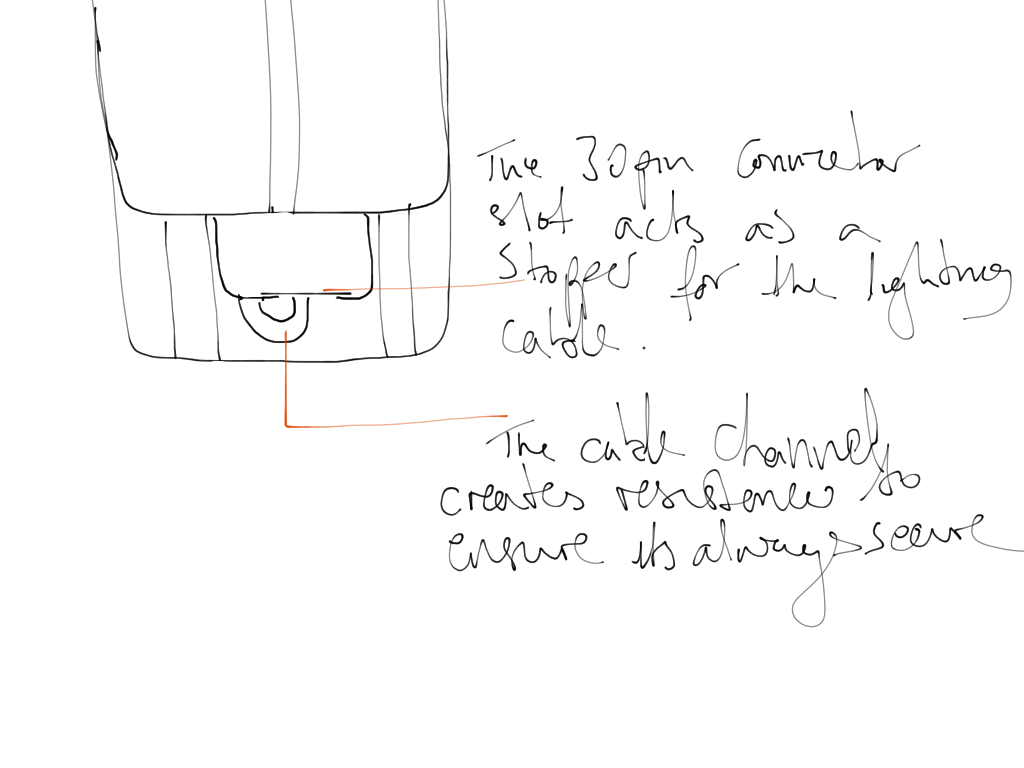 The 30pin Connector
slot acts as a
stopper for the lightning
cable.
The cable channel
creates resistance to
ensure its always secure